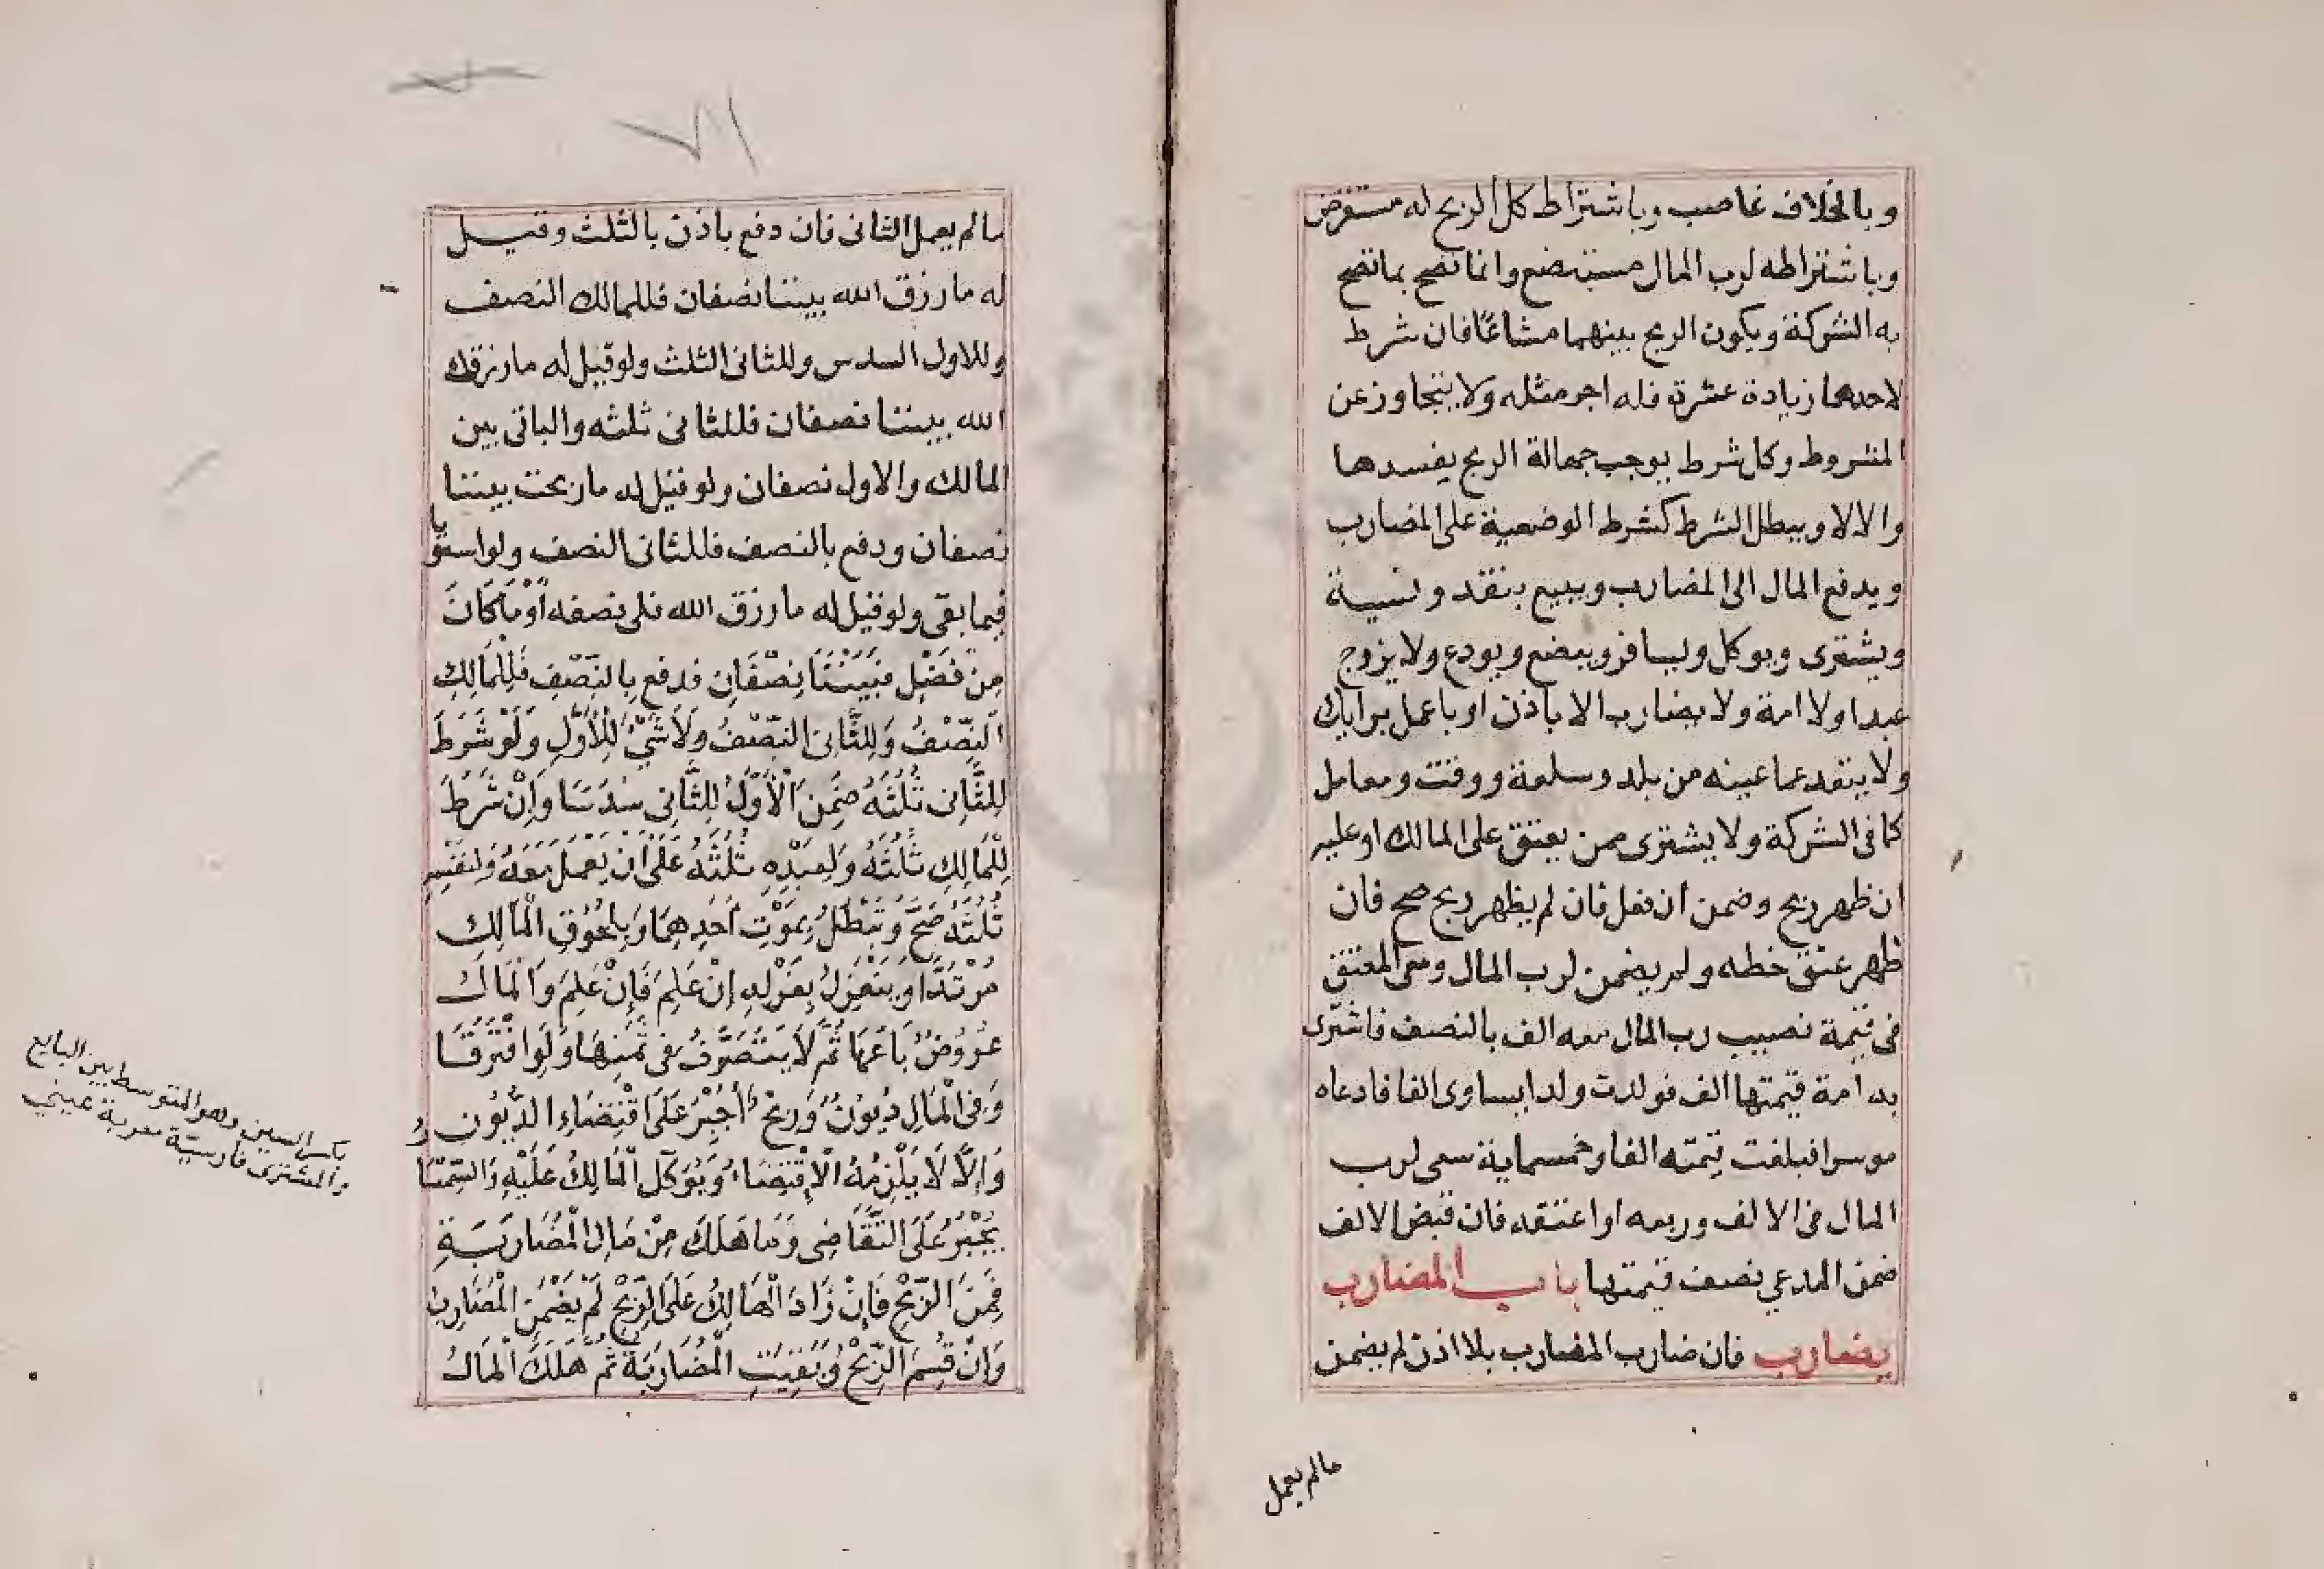 وبالخلاف غاصب وباشتراط كل الربح له مستقرض
وباشتراطه لرب المال مستبضع وانما تصح بما تصح
به الشركة ويكون الربح بينهما مشاعًا فان شرط
لاحدهما زيادة عشرة فله اجر مثله ولا يتجاوز عن
المشروط وكل شرط يوجب جهالة الربح يفسدها
والا لا ويبطل الشرط كشرط الوضعية على المضارب
ويدفع المال الى المضارب ويبيع بنقد ونسية
ويشترى ويوكل ويسافر ويبضع ويودع ولا يزوج
عبدا ولا امة ولا يضارب الا باذن او باعمل برايك
ولا يتعد عما عينه من بلد وسلعة ووقت ومعامل
كما فى الشركة ولا يشترى من يعتق على المالك او عليه
ان ظهر ربح وضمن ان فعل فان لم يظهر ربح صح فان
ظهر عتق حظه ولم يضمن لرب المال وسعى المعتق
فى قيمة نصيب رب المال معه الف بالنصف فاشترى
به امة قيمتها الف فولدت ولدا يساوى الفا فادعاه
موسرا فبلغت قيمته الفا وخمسماية سعى لرب
المال فى الالف وربعه او اعتقه فان قبض الالف
ضمن المدعي نصف قيمتها باب المضارب
يضارب فان ضارب المضارب بلا اذن لم يضمن
مالم يعمل
مالم يعمل الثانى فان دفع باذن بالثلث وقيل
له ما رزق الله بيننا نصفان فللمالك النصف
وللاول السدس وللثانى الثلث ولو قيل له ما رزقك
الله بيننا نصفان فللثانى ثلثه والباقى بين
المالك والاول نصفان ولو قيل له ما ربحت بيننا
نصفان ودفع بالنصف فللثانى النصف ولو استويا
فيما بقى ولو قيل له ما رزق الله فلى نصفه اَوْ مَا كَانَ
مِنْ فَضْلٍ فَبَيْنَنَا نِصْفَانِ فدفع بِالنِّصْفِ فَلِلْمَالِكِ
النِّصْفُ وَلِلثَّانِى النِّصْفُ وَلَا شَىْءَ لِلْأَوَّلِ وَلَوْ شَرَطَ
لِلثَّانِى ثُلُثَهُ ضَمِنَ الْأَوَّلُ لِلثَّانِى سُدُسًا وَاِنْ شَرَطَ
لِلْمَالِكِ ثُلُثَهُ وَلِعَبْدِهِ ثُلُثَهُ عَلَى اَنْ يَعْمَلَ مَعَهُ وَلِنَفْسِهِ
ثُلُثَهُ صَحَّ وَتَبْطُلُ بِمَوْتِ اَحَدِهِمَا وَبِلُحُوقِ الْمَالِكِ
مُرْتَدًّا وَيَنْعَزِلُ بِعَزْلِهِ اِنْ عَلِمَ فَاِنْ عَلِمَ وَالْمَالُ
عُرُوضٌ بَاعَهَا ثُمَّ لَا يَتَصَرَّفُ فِى ثَمَنِهَا وَلَوِ افْتَرَقَا
وَفِى الْمَالِ دُيُونٌ وَرِبْحٌ اُجْبِرَ عَلَى اقْتِضَاءِ الدُّيُونِ
وَاِلَّا لَا يَلْزَمُهُ الْاِقْتِضَاءُ وَيُوَكِّلُ الْمَالِكَ عَلَيْهِ وَالسِّمْسَارُ
يُجْبَرُ عَلَى التَّقَاضِى وَمَا هَلَكَ مِنْ مَالِ الْمُضَارَبَةِ
فَمِنَ الرِّبْحِ فَاِنْ زَادَ الْهَالِكُ عَلَى الرِّبْحِ لَمْ يَضْمَنِ الْمُضَارِبُ
وَاِنْ قُسِمَ الرِّبْحُ وَبَقِيَتِ الْمُضَارَبَةُ ثُمَّ هَلَكَ الْمَالُ
بكسر السين وهو المتوسط بين البايع
والمشترى فارسيّة معربة عيني